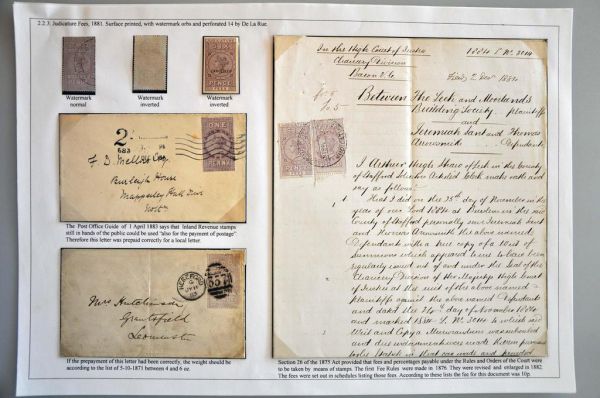 2.2.3. Judicature Fees, 1881. Surface printed, with watermark orbs and perforated 14 by De La Rue.
Watermark
normal
Watermark
inverted
Watermark
inverted
2
683
ONE
PENNY
F. D. Mellors Esq.
Burleigh House
Mapperley Hall Drive
Notts
The Post Office Guide of 1 April 1883 says that Inland Revenue stamps
still in hands of the public could be used "also for the payment of postage".
Therefore this letter was prepaid correctly for a local letter.
Mrs Hutchinson
Grantsfield
Leominster
If the prepayment of this letter had been correctly, the weight should be
according to the list of 5-10-1871 between 4 and 6 oz.
In the High Court of Justice 1884
Chancery Division
Bacon V.C.
Between The Leek and Moorlands
Building Society Plaintiffs
and
Jeremiah Sant and Thomas
Defendants
I Arthur Hugh
of Stafford Solicitor Articled Clerk make oath and
say as follows
1 That I did on the 25th day of November in the
year of our Lord 1884 at Burslem in the said
County of Stafford personally serve Jeremiah Sant
and Thomas the above named
Defendants with a true copy of a Writ of
Summons which appeared to me to have been
regularly issued out of and under the seal of the
Chancery Division of Her Majestys High Court
of Justice at the suit of the above named
Plaintiffs against the above named Defendants
and dated the 24th day of November 1884
Section 26 of the 1875 Act provided that fees and percentages payable under the Rules and Orders of the Court were
to be taken by means of stamps. The first Fee Rules were made in 1876. They were revised and enlarged in 1882.
The fees were set out in schedules listing those fees. According to these lists the fee for this document was 10p.